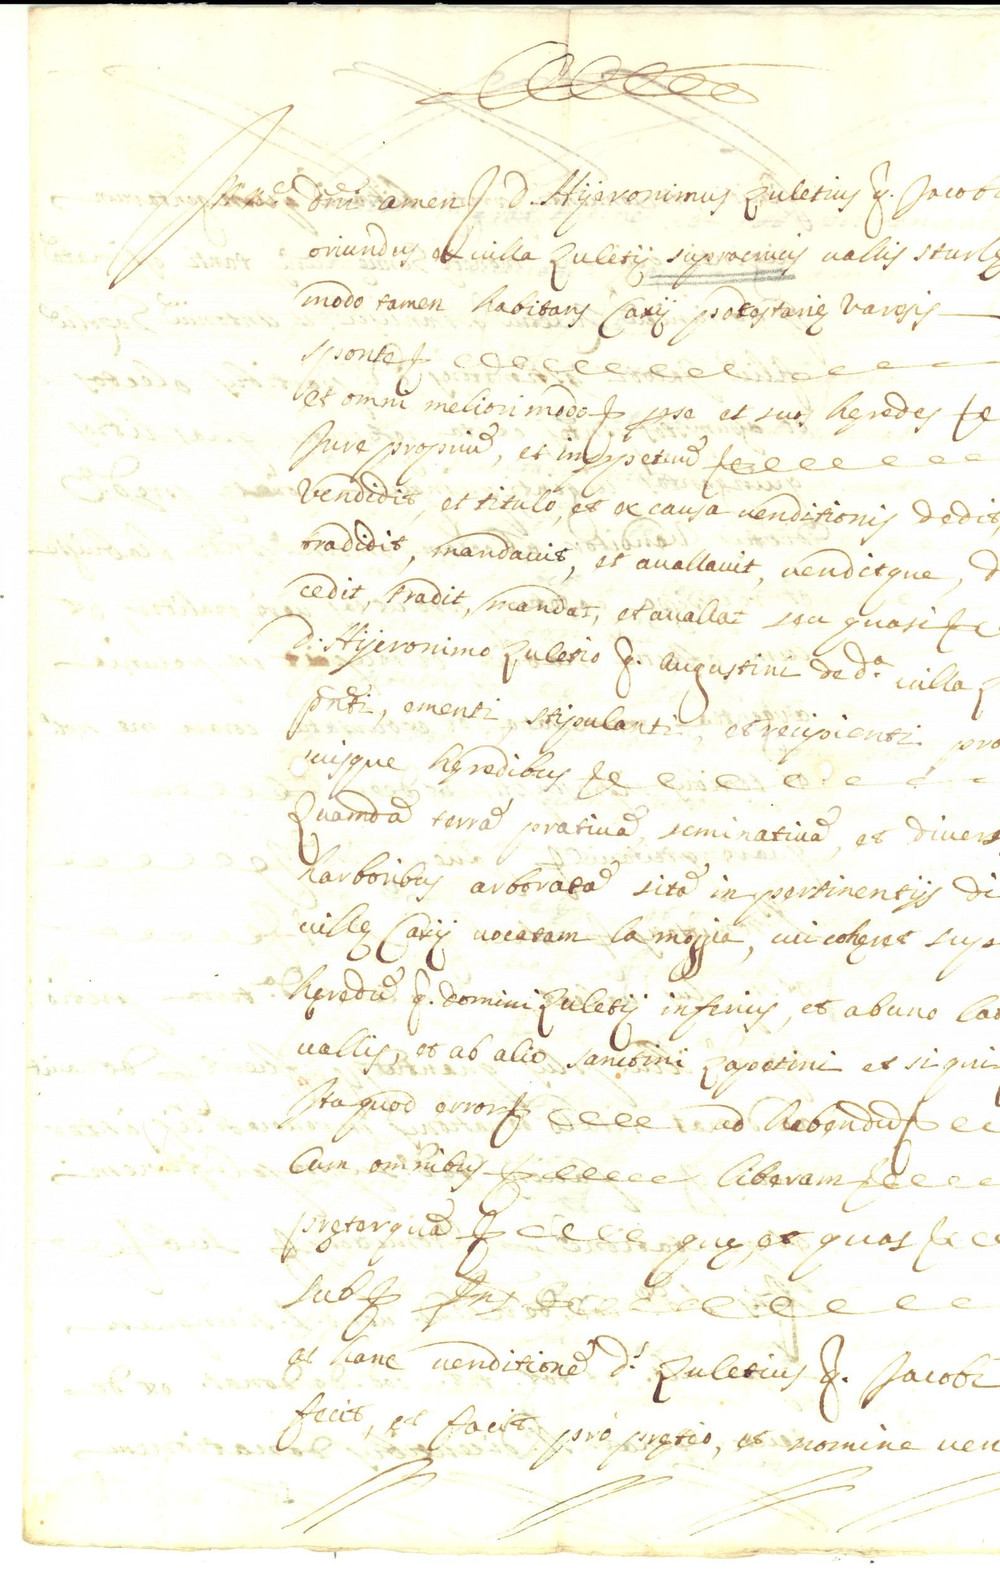 In no.e Dni amen d. Hijeronimus Zuletius q. Jacobi
oriundus ex villa Zuletij supracrucis vallis sturlę
modo tamen habitans Carij potestarię Varisij
sponte
et omni meliori modo pse et suos hęredes
Jure propriũ, et in ppetuũ
Vendidit, et titulo, et ex causa venditionis dedit,
tradidit, mandavit, et avallavit, venditque, d
cedit, tradit, mandat, et avallat seu quasi
d. Hijeronimo Zuletio q. Augustini de d.a villa Z
pnti, ementi, stipulanti, et recipienti pro
suisque hęredibus
Quamdã terrã prativã, seminativã, et divers
harboribus arboratã sitã in pertinentijs di
villę Carij vocatam la moggia, cui coheret sup
hęredũ q. Domini Zuletij inferius, et ab uno lat
vallis, et ab alio Sanctini Zapetini et si qui
Ita quod error ad habendũ
Cum omnibus liberam
pręterquã quę et quas
sub
et hanc venditionẽ d.s Zuletius q. Jacobi
fecit, et facit pro pretio, et nomine ven